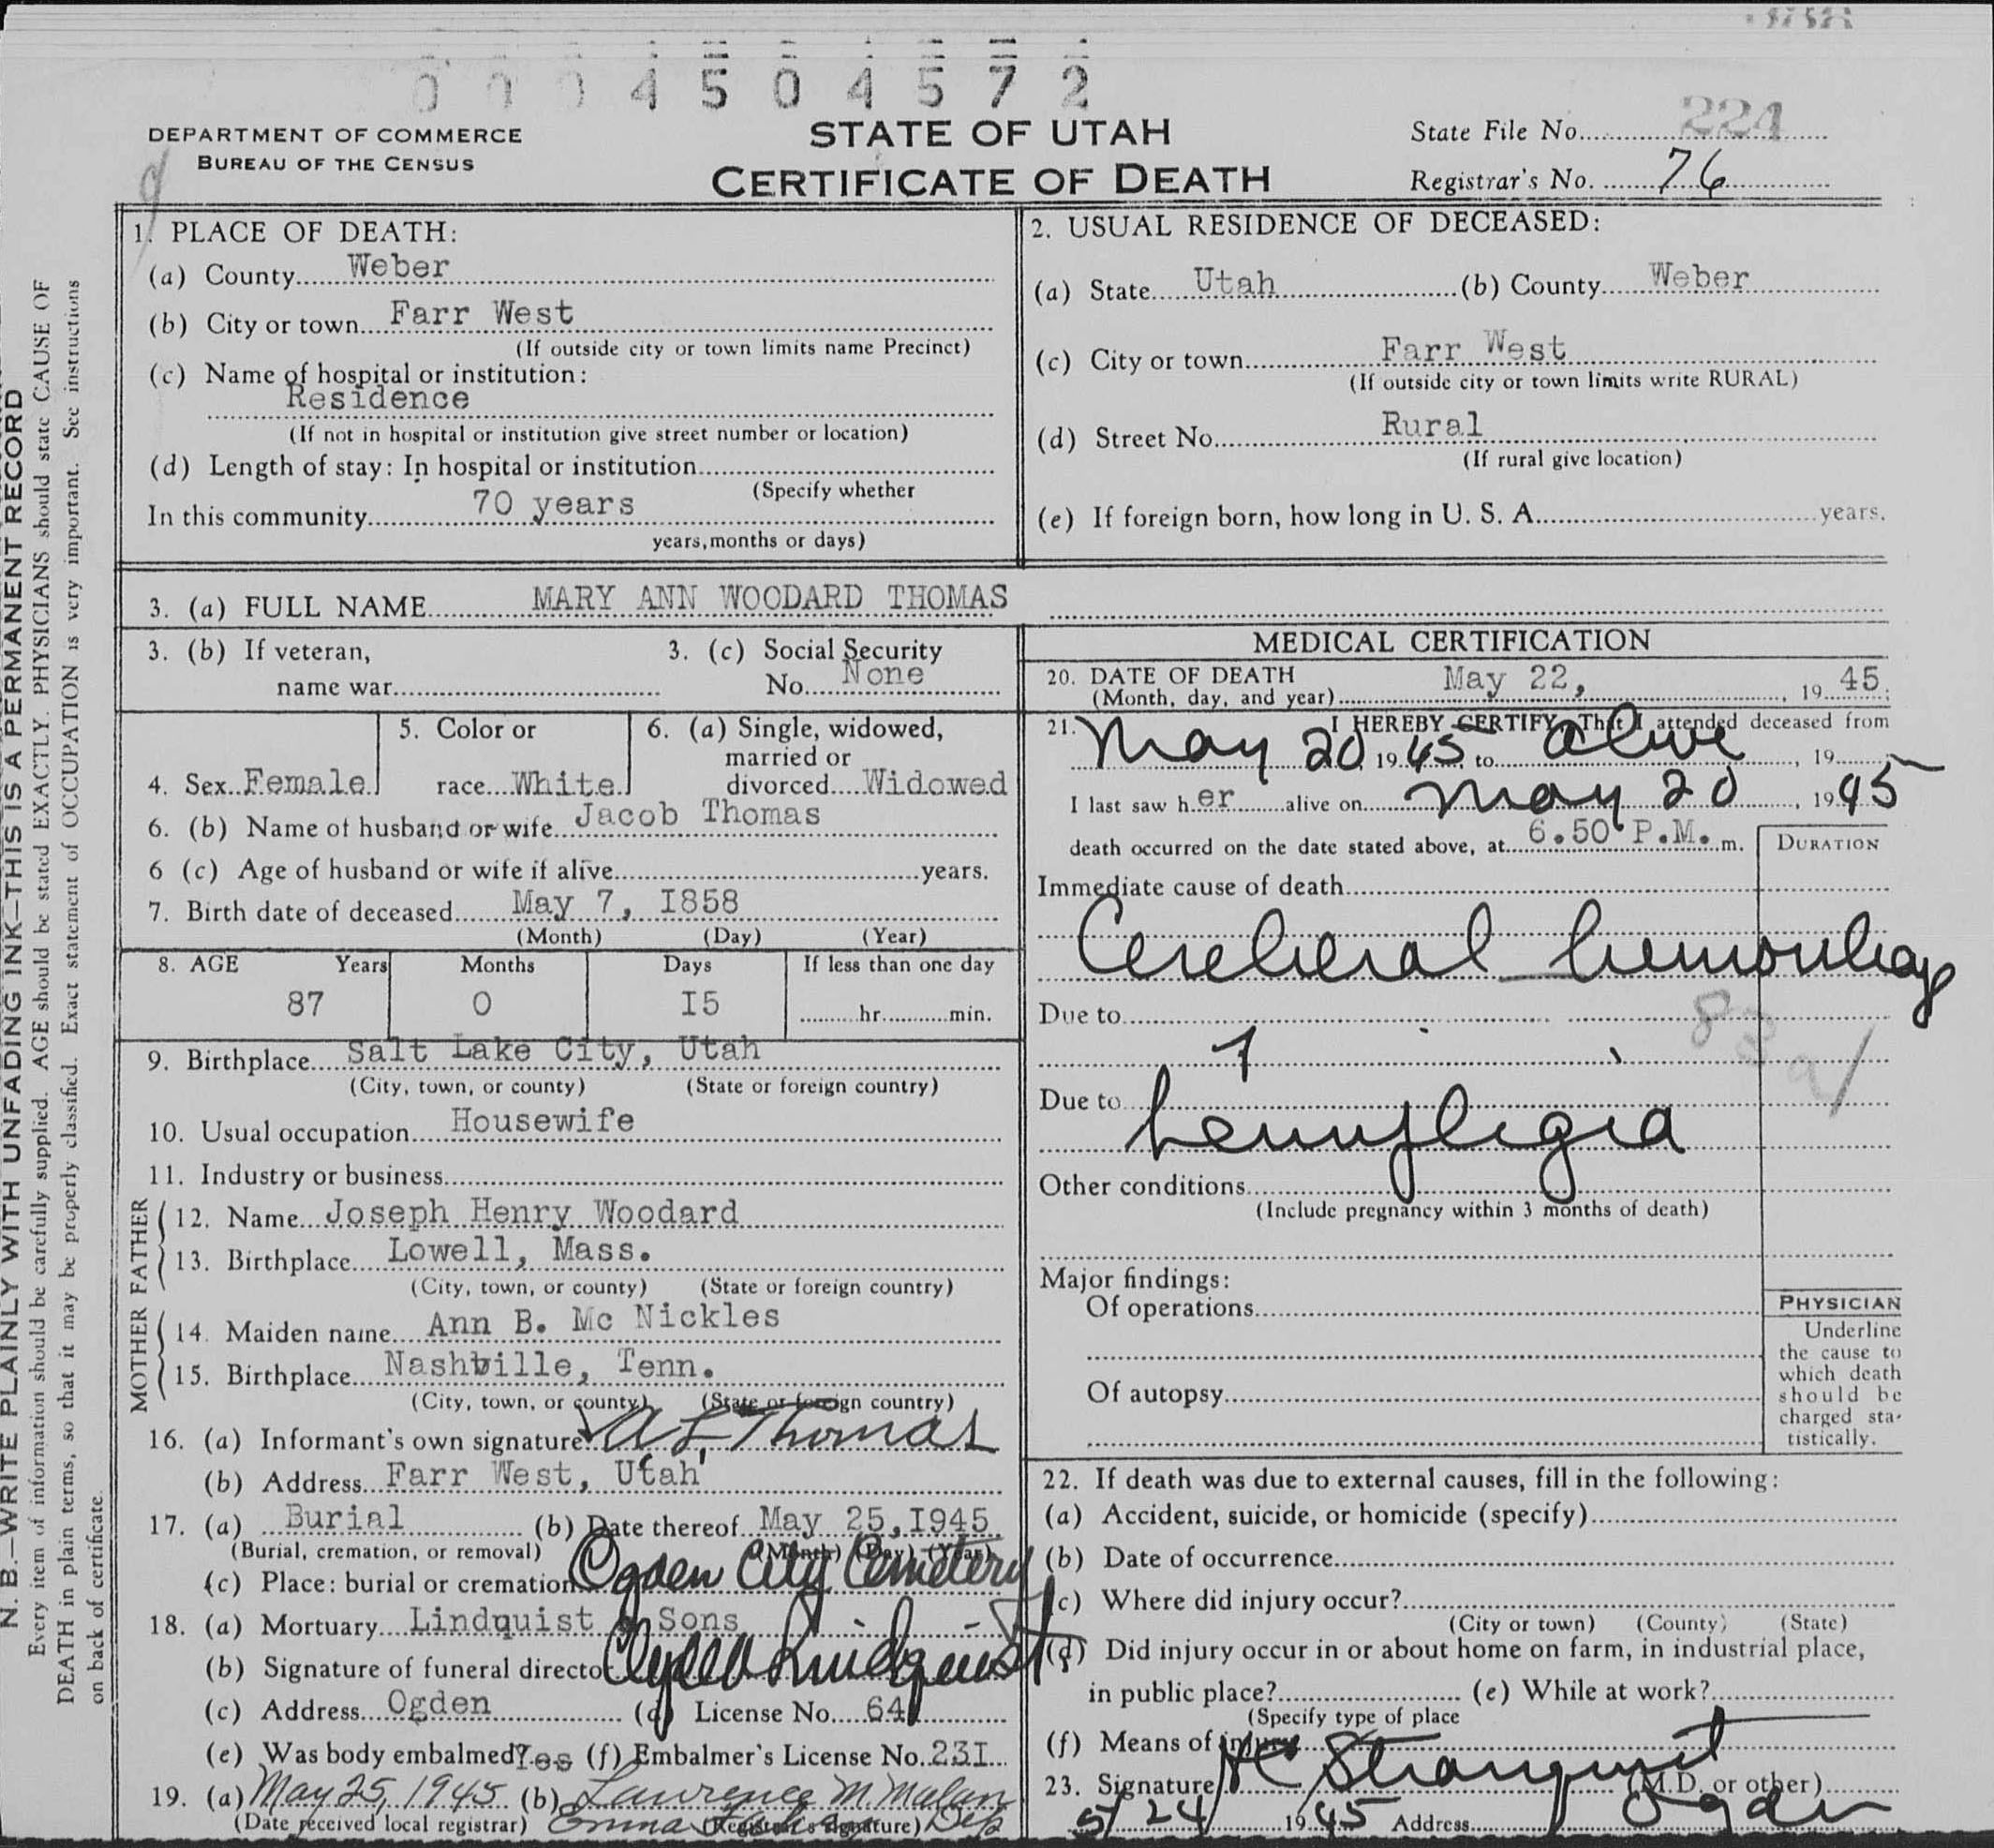 0 0 0 4 5 0 4 5 7 2
DEPARTMENT OF COMMERCE
BUREAU OF THE CENSUS
STATE OF UTAH
CERTIFICATE OF DEATH
State File No. 224
Registrar's No. 76
N. B.—WRITE PLAINLY WITH UNFADING INK—THIS IS A PERMANENT RECORD
Every item of information should be carefully supplied. AGE should be stated EXACTLY. PHYSICIANS should state CAUSE OF
DEATH in plain terms, so that it may be properly classified. Exact statement of OCCUPATION is very important. See instructions
on back of certificate.
1. PLACE OF DEATH:
(a) County Weber
(b) City or town Farr West
(If outside city or town limits name Precinct)
(c) Name of hospital or institution:
Residence
(If not in hospital or institution give street number or location)
(d) Length of stay: In hospital or institution
(Specify whether
In this community 70 years
years, months or days)
2. USUAL RESIDENCE OF DECEASED:
(a) State Utah (b) County Weber
(c) City or town Farr West
(If outside city or town limits write RURAL)
(d) Street No. Rural
(If rural give location)
(e) If foreign born, how long in U. S. A. years.
3. (a) FULL NAME MARY ANN WOODARD THOMAS
3. (b) If veteran,
name war
3. (c) Social Security
No. None
4. Sex Female
5. Color or
race White
6. (a) Single, widowed,
married or
divorced Widowed
6. (b) Name of husband or wife Jacob Thomas
6 (c) Age of husband or wife if alive years.
7. Birth date of deceased May 7, I858
(Month) (Day) (Year)
8. AGE Years Months Days If less than one day
87 0 I5 hr. min.
9. Birthplace Salt Lake City, Utah
(City, town, or county) (State or foreign country)
10. Usual occupation Housewife
11. Industry or business
FATHER
12. Name Joseph Henry Woodard
13. Birthplace Lowell, Mass.
(City, town, or county) (State or foreign country)
MOTHER
14. Maiden name Ann B. Mc Nickles
15. Birthplace Nashville, Tenn.
(City, town, or county) (State or foreign country)
16. (a) Informant's own signature A L Thomas
(b) Address Farr West, Utah
17. (a) Burial (b) Date thereof May 25, I945
(Burial, cremation, or removal) (Month) (Day) (Year)
(c) Place: burial or cremation Ogden City Cemetery
18. (a) Mortuary Lindquist & Sons
(b) Signature of funeral director Clyde Lindquist
(c) Address Ogden (d) License No. 64
(e) Was body embalmed? Yes (f) Embalmer's License No. 23I
19. (a) May 25, 1945 (b) Lawrence M Malan
(Date received local registrar) (Registrar's signature) Emma Dep
MEDICAL CERTIFICATION
20. DATE OF DEATH
(Month, day, and year) May 22, 19 45
21. I HEREBY CERTIFY, That I attended deceased from
May 20 19 45 to alive, 19
I last saw h er alive on May 20, 19 45
death occurred on the date stated above, at 6.50 P.M. m.
DURATION
Immediate cause of death
Cerebral hemorrhage
Due to
83 a
Due to
hemiplegia
Other conditions
(Include pregnancy within 3 months of death)
Major findings:
Of operations
Of autopsy
PHYSICIAN
Underline
the cause to
which death
should be
charged sta-
tistically.
22. If death was due to external causes, fill in the following:
(a) Accident, suicide, or homicide (specify)
(b) Date of occurrence
(c) Where did injury occur?
(City or town) (County) (State)
(d) Did injury occur in or about home on farm, in industrial place,
in public place? (e) While at work?
(Specify type of place
(f) Means of injury
23. Signature Stranquist (M.D. or other)
5/24/ 19 45 Address Ogden